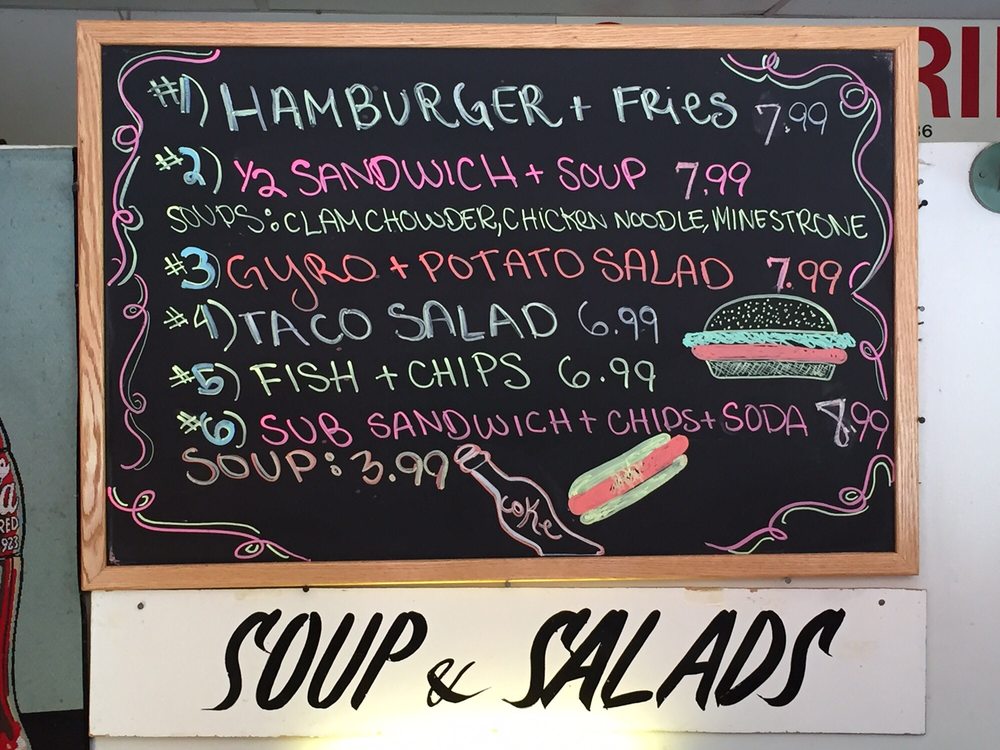 #1) HAMBURGER + Fries 7.99
#2) 1/2 SANDWICH + SOUP 7.99
SOUPS: CLAM CHOWDER, CHICKEN NOODLE, MINESTRONE
#3 GYRO + POTATO SALAD 7.99
#4) TACO SALAD 6.99
#5) FISH + CHIPS 6.99
#6) SUB SANDWICH + CHIPS + SODA 8.99
SOUP: 3.99
Coke
SOUP & SALADS
RI
36
a
RED
923